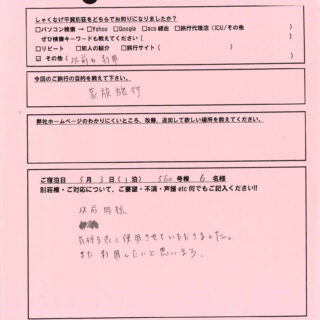 しゃくなげ平貸別荘をどちらでお知りになりましたか？
□パソコン検索 → □Yahoo □Google □aco 経由 □旅行代理店（ICU/その他 ）
ぜひ検索キーワードも教えてください（ ）
□リピート □知人の紹介 □旅行サイト（ ）
☑その他（以前も利用 ）
今回のご旅行の目的を教えて下さい。
家族旅行
弊社ホームページのわかりにくいところ、改善、追加して欲しい場所を教えてください。
ご宿泊日 5月3日（1泊） 560号棟 6名様
別荘棟・ご対応について、ご要望・不満・声援 etc 何でもご記入ください!!
以前同様
気持ちよく使用させていただきました。
また利用したいと思います。